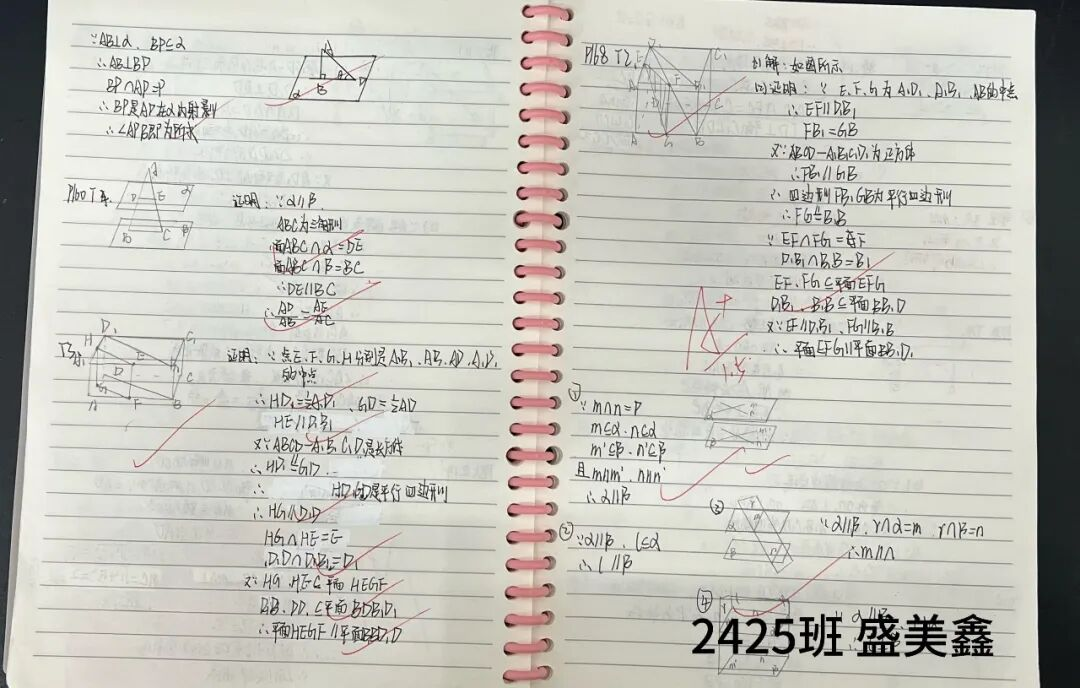 ∵AB⊥α, BP⊆α
∴AB⊥BP
BP∩AP=P
∴BP是AP在α内射影
∴∠APB为所求
P160 T
证明:∵α∥β
ABC为三角形
面ABC∩α=DE
面ABC∩β=BC
∴DE∥BC
∴AD/AB=AE/AC
证明:∵点E、F、G、H分别是A₁B₁、AB、AD、A₁D₁
的中点
∴HD₁=½A₁D₁、GD=½AD
HE∥D₁B₁
又∵ABCD-A₁B₁C₁D₁是长方体
∴HD₁∥GD
∴ 是平行四边形
∴HG∥D₁D
HG∩HE=E
D₁D∩D₁B₁=D₁
又∵HG、HE⊆平面HEGF
⊆平面BDB₁D₁
∴平面HEGF∥平面BB₁D₁D
P168 T2
(1)解:如图所示
(2)证明:∵E、F、G为A₁D₁、A₁B₁、AB的中点
∴EF∥D₁B₁
FB₁=GB
又∵ABCD-A₁B₁C₁D₁为正方体
∴FB₁∥GB
∴四边形FB₁GB为平行四边形
∴FG∥B₁B
∵EF∩FG=F
D₁B₁∩B₁B=B₁
EF、FG⊆平面EFG
D₁B₁、B₁B⊆平面BB₁D
又∵EF∥D₁B₁、FG∥B₁B
∴平面EFG∥平面BB₁D₁
A+
①
∵m∩n=P
m⊆α、n⊆α
m'⊆β、n'⊆β
且m∥m'、n∥n'
∴α∥β
②
∵α∥β、l⊆α
∴l∥β
③
∵α∥β、γ∩α=m、γ∩β=n
∴m∥n
④
∵α∥β
2425班 盛美鑫